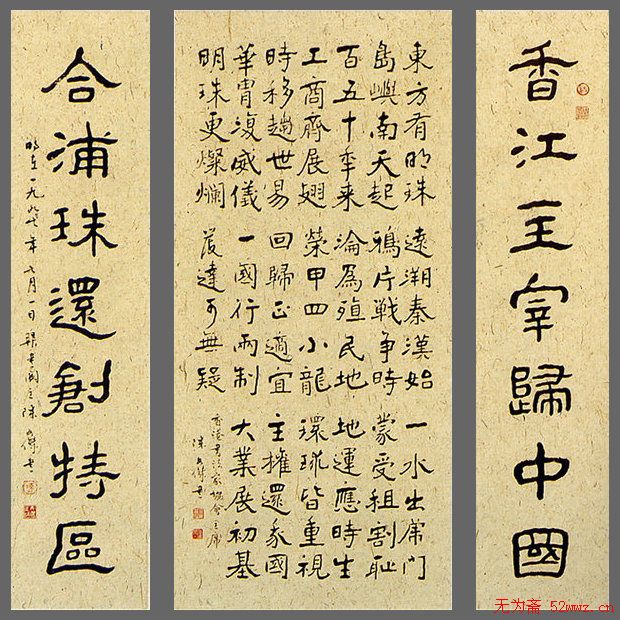 香江主宰歸中國
東方有明珠 遠溯秦漢始 一水出虎門
島嶼南天起 鴉片戰爭時 蒙受租割恥
百五十年来 淪為殖民地 地運應時生
工商齊展翅 榮甲四小龍 環球皆重視
時移趨世易 回歸正適宜 主權還我國
華胄復威儀 一國行兩制 大業展初基
明珠更燦斕 發達可無疑
香港書法家協會主席
陳文傑書
合浦珠還創特區
時在一九九七年七月一日 主陳文傑書
无为斋 52wwz.cn